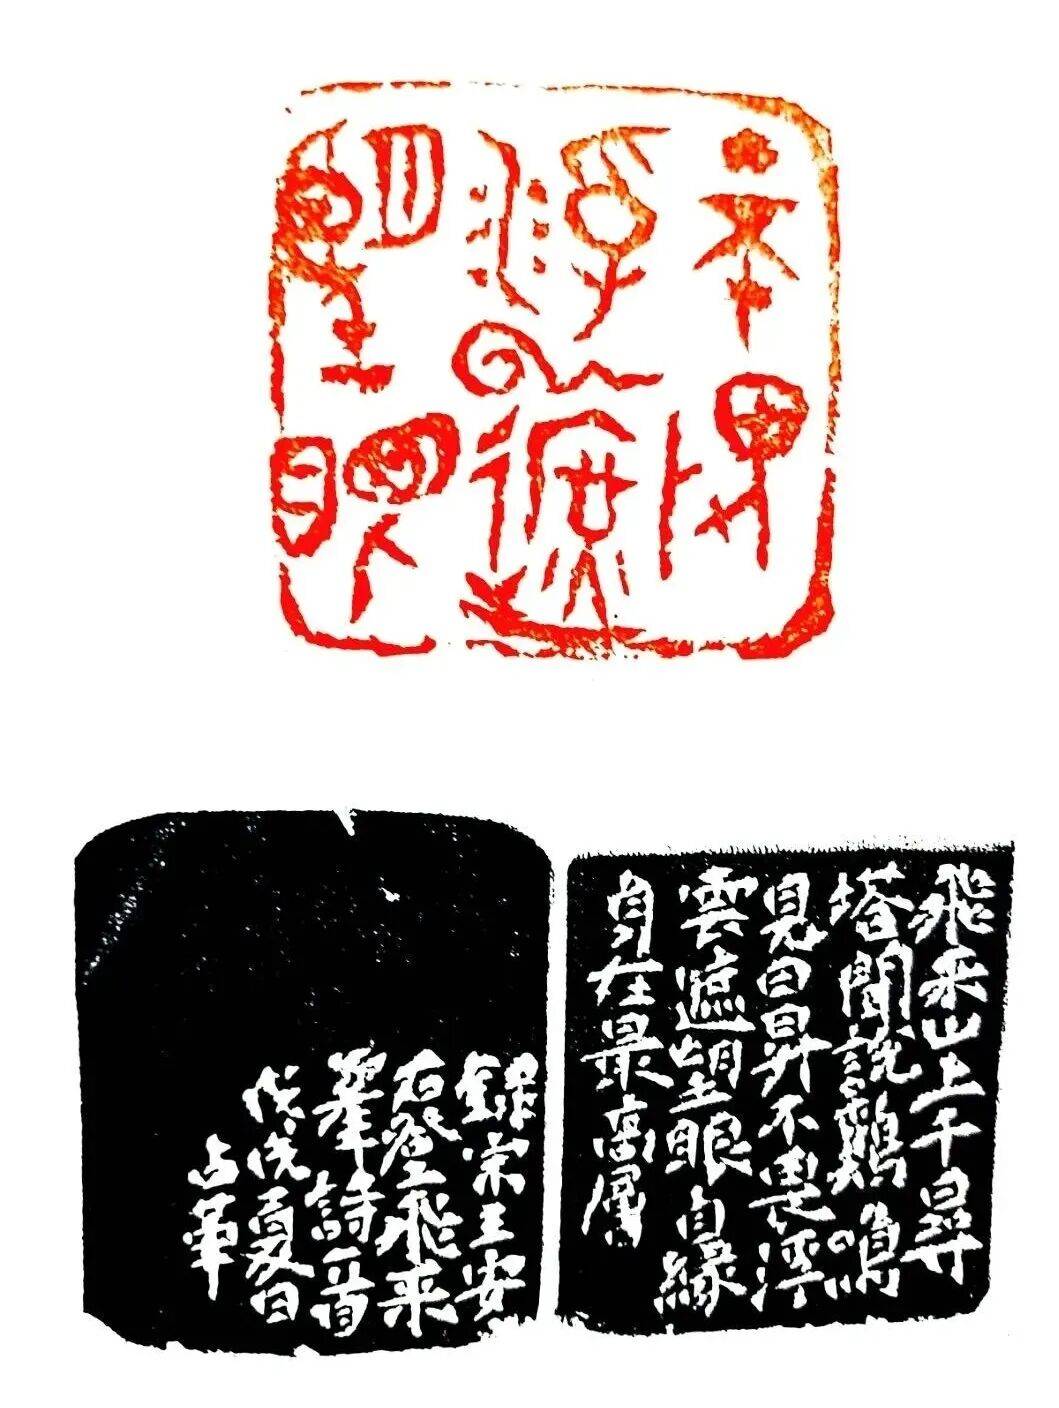 不畏
浮云遮
望眼
飛来山上千尋
塔聞説鷄鳴
見日昇不畏浮
雲遮望眼自緣
身在最高層
錄宋王安
石登飛来
峯詩一首
戊戌夏日